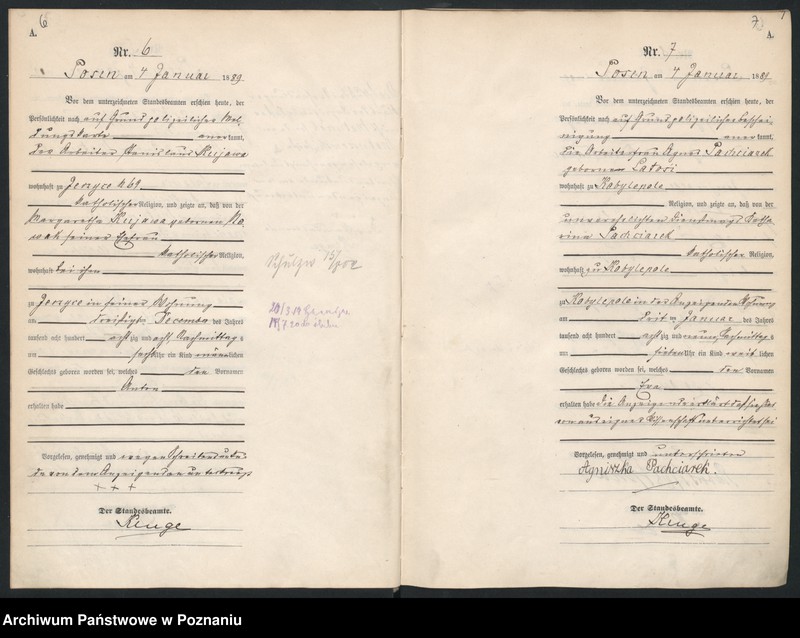 6
A.
Nr. 6
Posen am 4 Januar 1889
Vor dem unterzeichneten Standesbeamten erschien heute, der
Persönlichkeit nach auf Grund polizeilicher Mel-
dungskarte anerkannt,
der Arbeiter Stanislaus Kujawa
wohnhaft zu Jerzyce
katholischer Religion, und zeigte an, daß von der
Margaretha Kujawa geborenen No-
wak seiner Ehefrau
katholischer Religion,
wohnhaft bei ihm
zu Jerzyce in seiner Wohnung
am dreißigsten Dezember des Jahres
tausend acht hundert achtzig und acht Nachmittag s
um sechs Uhr ein Kind männlichen
Geschlechts geboren worden sei, welches den Vornamen
Anton
erhalten habe
Vorgelesen, genehmigt und wegen Schreibensunkun-
de von dem Anzeigenden unterkreuzt
+ + +
Der Standesbeamte.
7
A.
Nr. 7
Posen am 4 Januar 1889
Vor dem unterzeichneten Standesbeamten erschien heute, der
Persönlichkeit nach auf Grund polizeilicher Beschei-
nigung anerkannt,
die Arbeiterfrau Agnes Pachciarek
geborene
wohnhaft zu Kobylepole
Religion, und zeigte an, daß von der
unverehelichten Dienstmagd Katha-
rina Pachciarek
katholischer Religion,
wohnhaft zu Kobylepole
zu Kobylepole in der Anzeigenden Wohnung
am Januar des Jahres
tausend acht hundert achtzig und neun Nachmittag s
um sieben Uhr ein Kind weiblichen
Geschlechts geboren worden sei, welches den Vornamen
Eva
erhalten habe die Anzeigende erklärt daß sie
von aus eigner Wissenschaft unterrichtet sei
Vorgelesen, genehmigt und unterschrieben
Agniszka Pachciarek.
Der Standesbeamte.
Archiwum Państwowe w Poznaniu